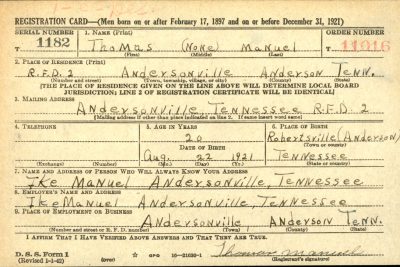 REGISTRATION CARD—(Men born on or after February 17, 1897 and on or before December 31, 1921)
SERIAL NUMBER 1. NAME (Print) ORDER NUMBER
T 1182 Thomas (None) Manuel T 11016
(First) (Middle) (Last)
2. PLACE OF RESIDENCE (Print)
R.F.D. 2 Andersonville Anderson Tenn.
(Number and street) (Town, township, village, or city) (County) (State)
(THE PLACE OF RESIDENCE GIVEN ON THE LINE ABOVE WILL DETERMINE LOCAL BOARD
JURISDICTION; LINE 2 OF REGISTRATION CERTIFICATE WILL BE IDENTICAL)
3. MAILING ADDRESS
Andersonville, Tennessee R.F.D. 2
(Mailing address if other than place indicated on line 2. If same insert word same)
4. TELEPHONE 5. AGE IN YEARS 6. PLACE OF BIRTH
20 Robertsville (Anderson)
DATE OF BIRTH (Town or county)
Aug. 22 1921 Tennessee
(Exchange) (Number) (Mo.) (Day) (Yr.) (State or country)
7. NAME AND ADDRESS OF PERSON WHO WILL ALWAYS KNOW YOUR ADDRESS
Ike Manuel Andersonville, Tennessee
8. EMPLOYER'S NAME AND ADDRESS
Ike Manuel Andersonville, Tennessee
9. PLACE OF EMPLOYMENT OR BUSINESS
Andersonville Anderson Tenn.
(Number and street or R. F. D. number) (Town) (County) (State)
I AFFIRM THAT I HAVE VERIFIED ABOVE ANSWERS AND THAT THEY ARE TRUE.
D. S. S. Form 1
(Revised 1-1-42) (over) GPO 16—21630-1 Thomas Manuel
(Registrant's signature)